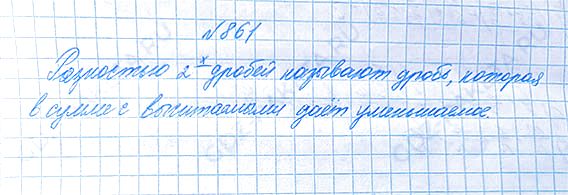 №861
Разностью 2ˣ дробей называют дробь, которая
в сумме с вычитаемым даёт уменьшаемое.